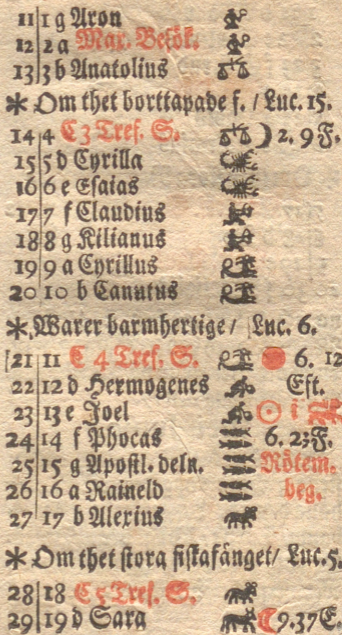 11 1 g Aron
12 2 a Mar. Besök.
13 3 b Anatolius
* Om thet borttapade f. / Luc. 15.
14 4 C 3 Tref. S. 2. 9 F.
15 5 d Cyrilla
16 6 e Esaias
17 7 f Claudius
18 8 g Kilianus
19 9 a Cyrillus
20 10 b Canutus
* Warer barmhertige / Luc. 6.
21 11 C 4 Tref. S. 6. 12
22 12 d Hermogenes Eft.
23 13 e Joel ☉ i
24 14 f Phocas 6. 23 F.
25 15 g Apostl. deln. Rötem.
26 16 a Raineld beg.
27 17 b Alexius
* Om thet stora fiskafänget / Luc. 5.
28 18 C 5 Tref. S.
29 19 d Sara 9. 37 E.